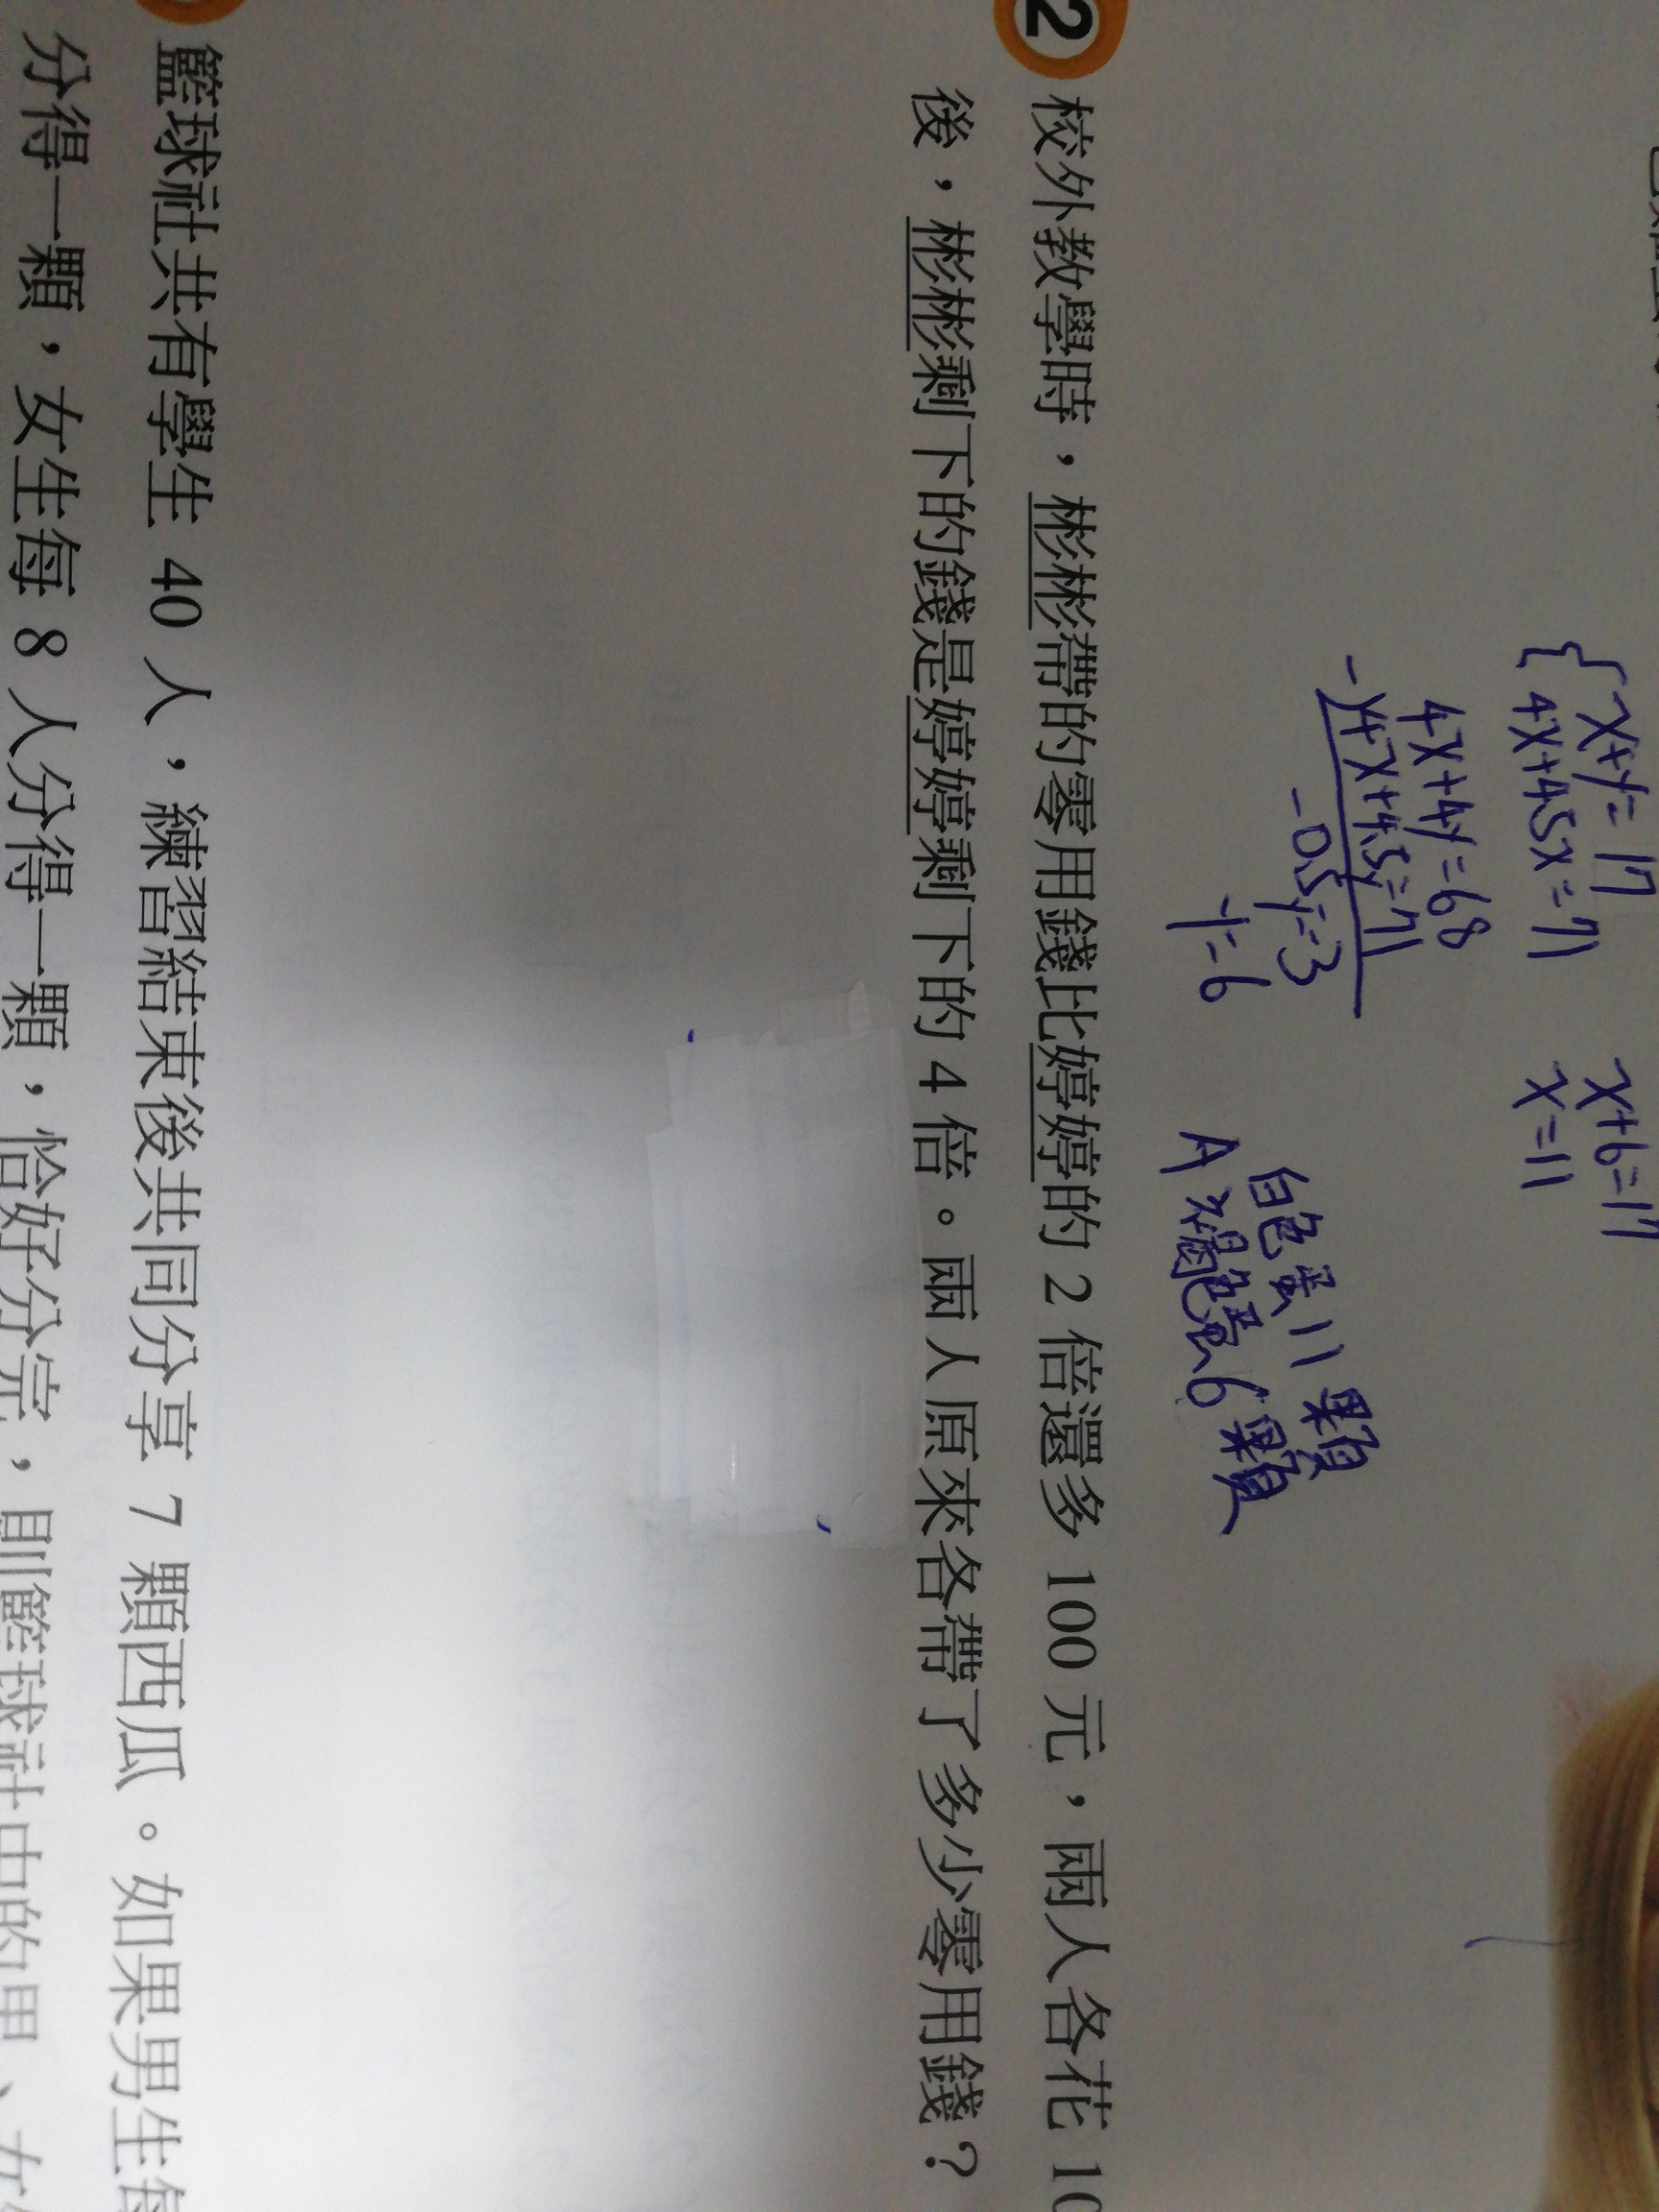 {x+y=17
4x+4.5x=71
x+6=17
x=11
4x+4y=68
-)4x+4.5y=71
-0.5y=-3
y=6
白色蛋11顆
A 褐色蛋6顆
2 校外教學時，彬彬帶的零用錢比婷婷的 2 倍還多 100 元，兩人各花 10
後，彬彬剩下的錢是婷婷剩下的 4 倍。兩人原來各帶了多少零用錢？
籃球社共有學生 40 人，練習結束後共同分享 7 顆西瓜。如果男生每
分得一顆，女生每 8 人分得一顆，恰好分完，則籃球社中的男、女